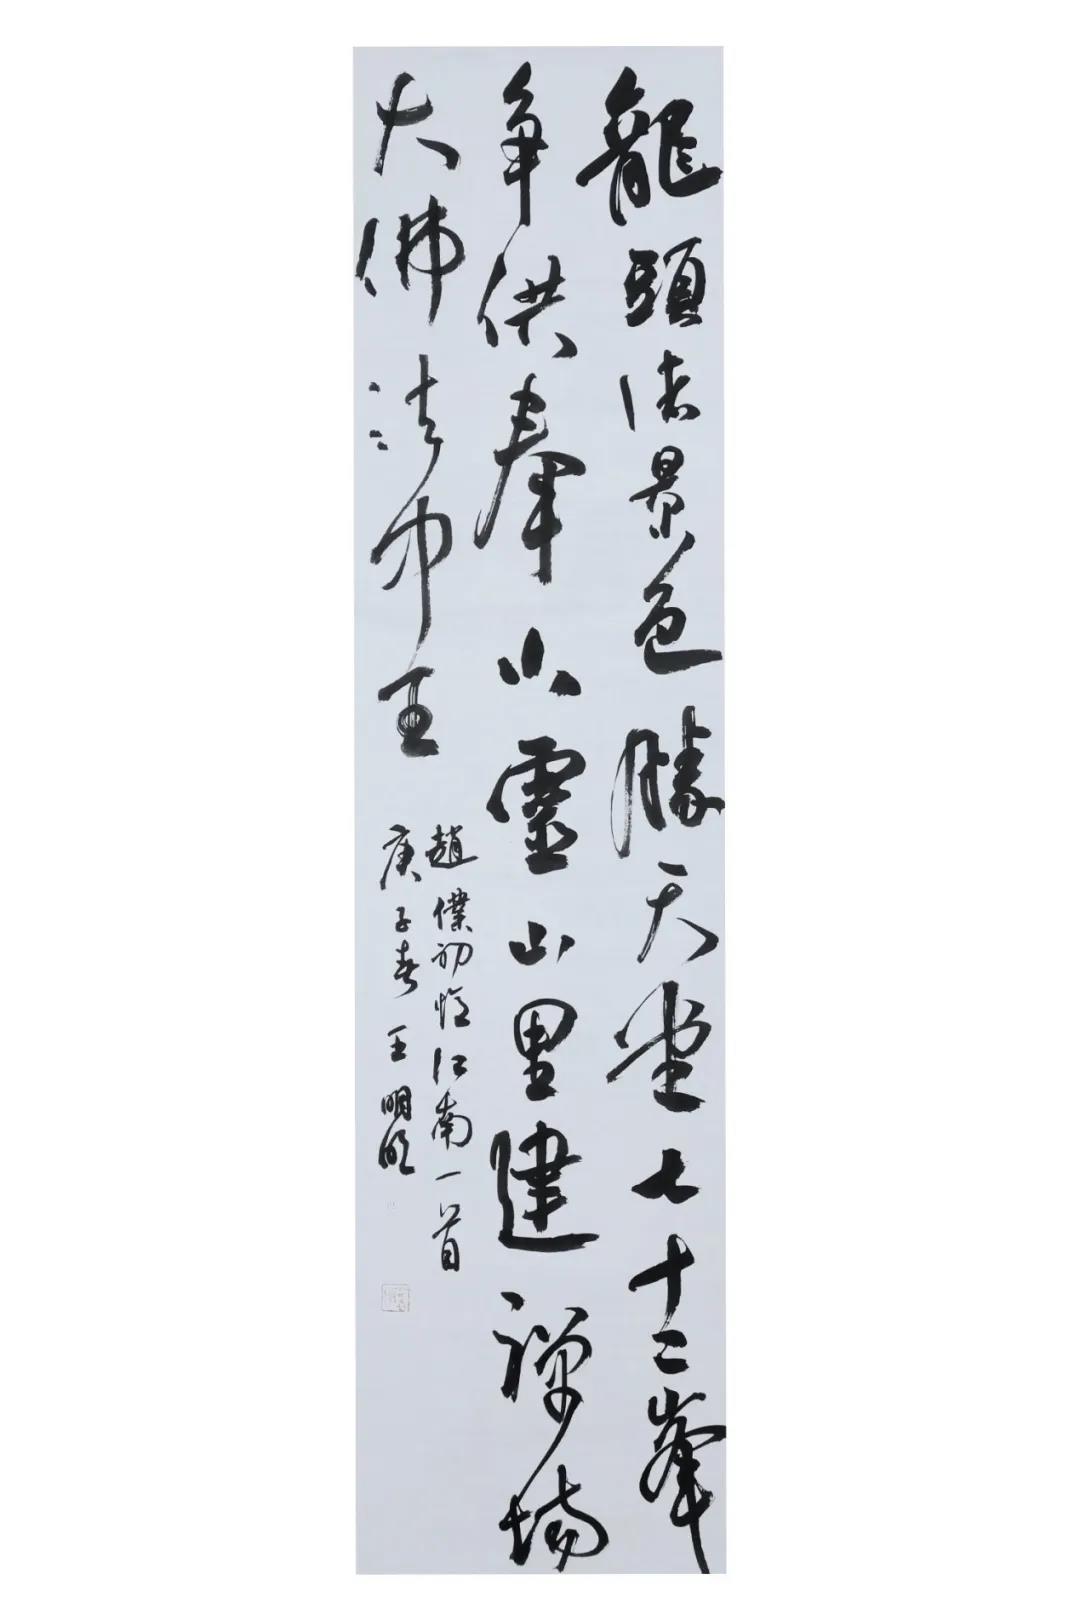 龍頭渚景色勝天堂七十二峯
争供奉小靈山里建禪場
大佛法中王
趙僕初憶江南一首
庚子春王明明